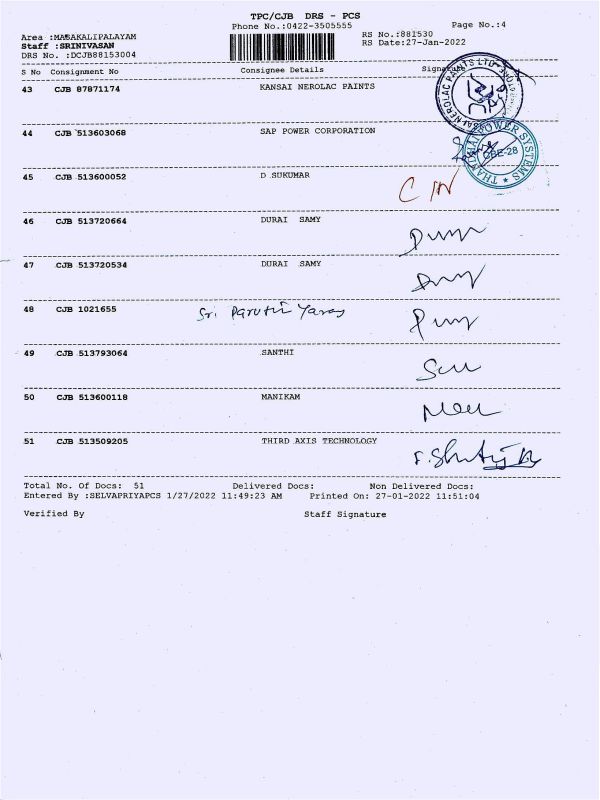 TPC/CJB DRS - PCS
Phone No.:0422-3505555
Page No.:4
Area :MASAKALIPALAYAM
Staff :SRINIVASAN
DRS No. :DCJB88153004
RS No.:881530
RS Date:27-Jan-2022
S No Consignment No Consignee Details
43 CJB 87871174 KANSAI NEROLAC PAINTS
44 CJB 513603068 SAP POWER CORPORATION
CBE-28
POWER SYSTEMS
45 CJB 513600052 D SUKUMAR
46 CJB 513720664 DURAI SAMY
47 CJB 513720534 DURAI SAMY
48 CJB 1021655 Sri
49 CJB 513793064 SANTHI
50 CJB 513600118 MANIKAM
51 CJB 513509205 THIRD AXIS TECHNOLOGY
Total No. Of Docs: 51 Delivered Docs: Non Delivered Docs:
Entered By :SELVAPRIYAPCS 1/27/2022 11:49:23 AM Printed On: 27-01-2022 11:51:04
Verified By Staff Signature